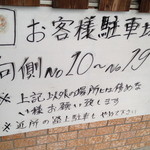 お客様駐車場
向側No10〜No19
※上記以外の場所には停めな
い様お願い致します
※近所の路上駐車もやめて下さい